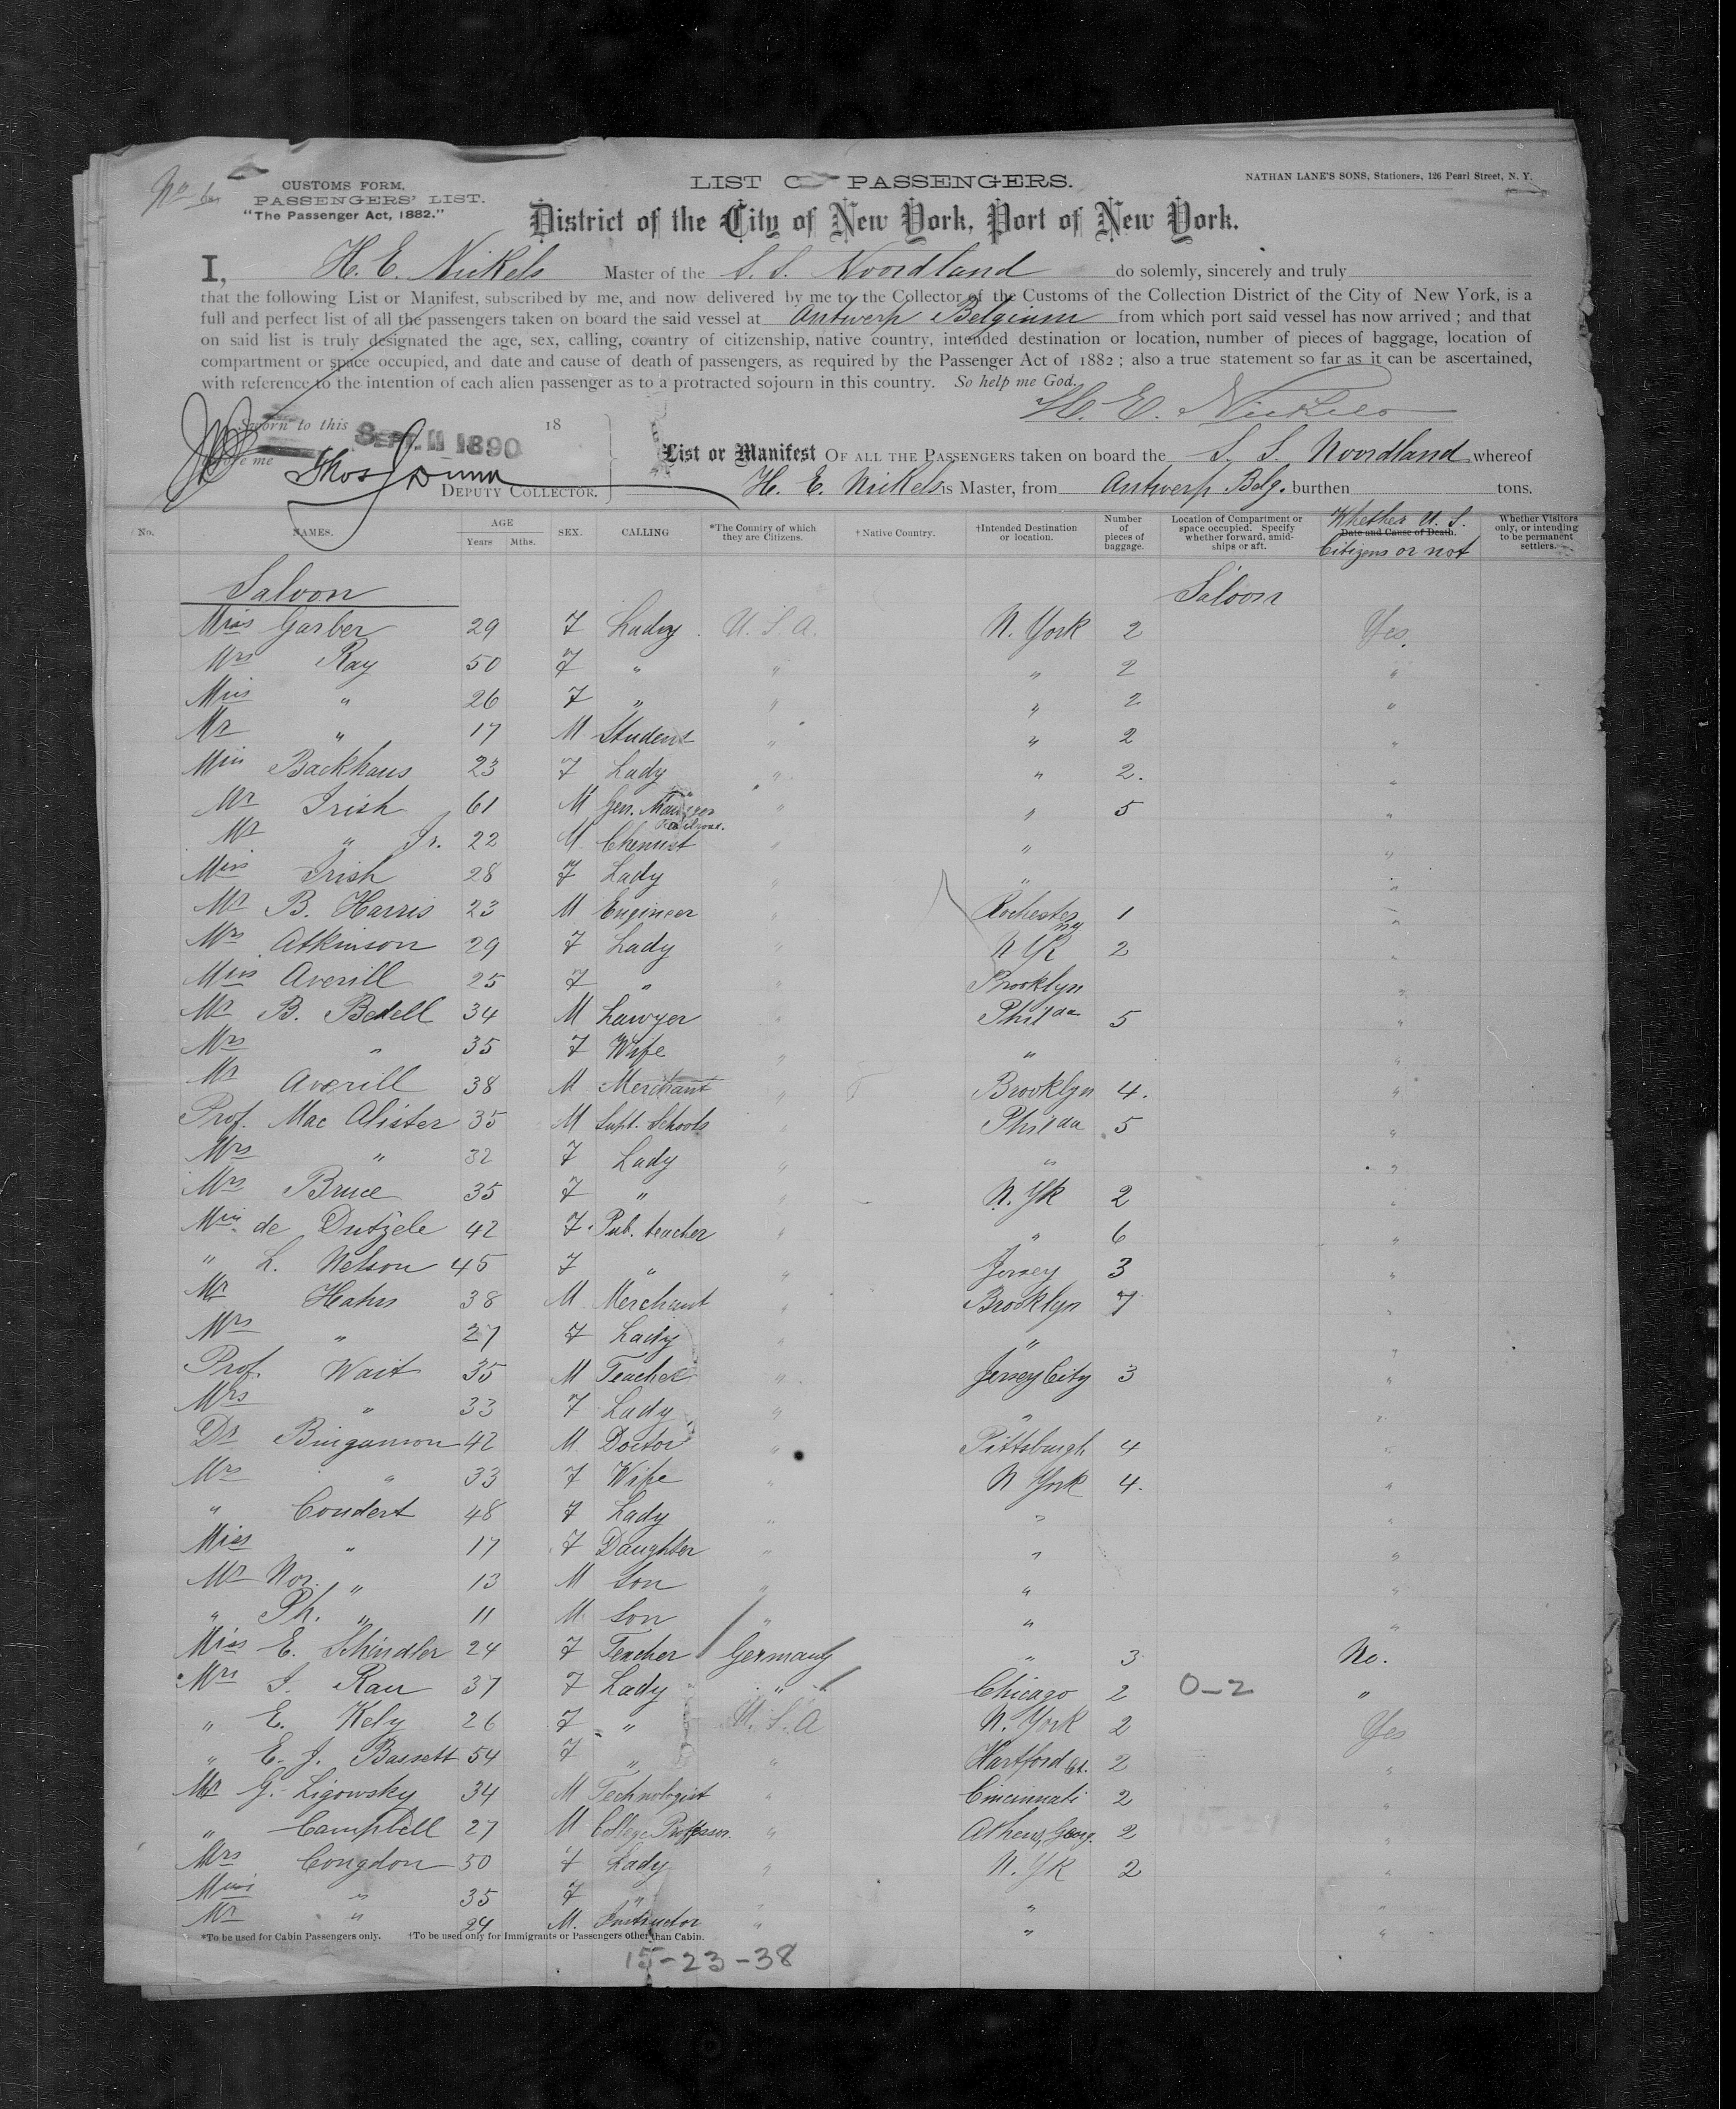 No 6
CUSTOMS FORM.
PASSENGERS' LIST.
"The Passenger Act, 1882."
LIST OF PASSENGERS.
NATHAN LANE'S SONS, Stationers, 126 Pearl Street, N. Y.
District of the City of New York, Port of New York.
I, H. E. Nickels Master of the S. S. Noordland do solemly, sincerely and truly
that the following List or Manifest, subscribed by me, and now delivered by me to the Collector of the Customs of the Collection District of the City of New York, is a
full and perfect list of all the passengers taken on board the said vessel at Antwerp Belgium from which port said vessel has now arrived; and that
on said list is truly designated the age, sex, calling, country of citizenship, native country, intended destination or location, number of pieces of baggage, location of
compartment or space occupied, and date and cause of death of passengers, as required by the Passenger Act of 1882; also a true statement so far as it can be ascertained,
with reference to the intention of each alien passenger as to a protracted sojourn in this country. So help me God.
H. E. Nickels
Sworn to this SEPT. 11 1890 18
before me Thos J Dunn
DEPUTY COLLECTOR.
List or Manifest OF ALL THE PASSENGERS taken on board the S. S. Noordland whereof
H. E. Nickels is Master, from Antwerp Belg. burthen tons.
No. NAMES. AGE Years Mths. SEX. CALLING *The Country of which they are Citizens. †Native Country. †Intended Destination or location. Number of pieces of baggage. Location of Compartment or space occupied. Specify whether forward, amidships or aft. Date and Cause of Death. Whether U. S. Citizens or not Whether Visitors only, or intending to be permanent settlers.
Saloon Saloon
Miss Garber 29 F Lady U. S. A. N. York 2 Yes.
Mrs Ray 50 F " " " 2 "
Miss " 26 F " " " 2 "
Mr " 17 M Student " " 2 "
Miss Backhaus 23 F Lady " " 2. "
Mr Irish 61 M Gen. Manager Railroad. " " 5 "
Mr " Jr. 22 M Chemist " " "
Miss Irish 28 F Lady " " "
Mr B. Harris 23 M Engineer " Rochester NY 1 "
Mrs Atkinson 29 F Lady " N YK 2 "
Miss Averill 25 F " " Brooklyn "
Mr B. Bedell 34 M Lawyer " Philda 5 "
Mrs " 35 F Wife " " "
Mr Averill 38 M Merchant " Brooklyn 4. "
Prof. Mac Alister 35 M Supt. Schools " Philda 5 "
Mrs " 32 F Lady " " "
Mrs Bruce 35 F " " N. YK 2 "
Miss de Dutzele 42 F. Pub. teacher " " 6 "
" L. Nelson 45 F " " Jersey 3 "
Mr Hahn 38 M Merchant " Brooklyn 7 "
Mrs " 27 F Lady " " "
Prof. Wait 35 M Teacher " Jersey City 3 "
Mrs " 33 F Lady " " "
Dr Bingamon 42 M. Doctor " Pittsburgh 4 "
Mrs " 33 F Wife " N York 4. "
" Coudert 48 F Lady " " "
Miss " 17 F Daughter " " "
Mr " 13 M Son " " "
" Ph. " 11 M Son " " "
Miss E. Schindler 24 F Teacher Germany " 3 No.
Mrs I. Rau 37 F Lady " Chicago 2 0-2 "
" E. Kely 26 F " U. S. A N. York 2 Yes
" E. J. Bassett 54 F " " Hartford Ct. 2 "
Mr G. Ligowsky 34 M Technologist " Cincinnati 2 "
" Campbell 27 M College Professor. " Athens, Georg. 2 "
Mrs Congdon 50 F Lady " N. YK 2 "
Miss " 35 F " " " "
Mr " 24 M. Instructor " " "
*To be used for Cabin Passengers only. †To be used only for Immigrants or Passengers other than Cabin.
15-23-38